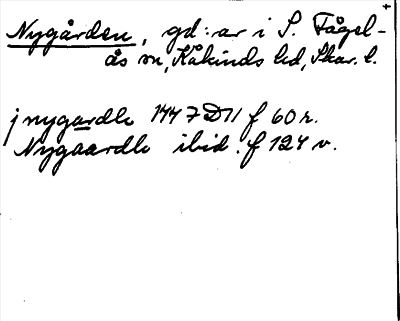 Nygården, gd:ar i S. Fågel-
ås sn, Kåkinds hd, Skar. l.
j nygardle 1447 D11 f 60 r.
Nygaardle ibid. f 124 v.